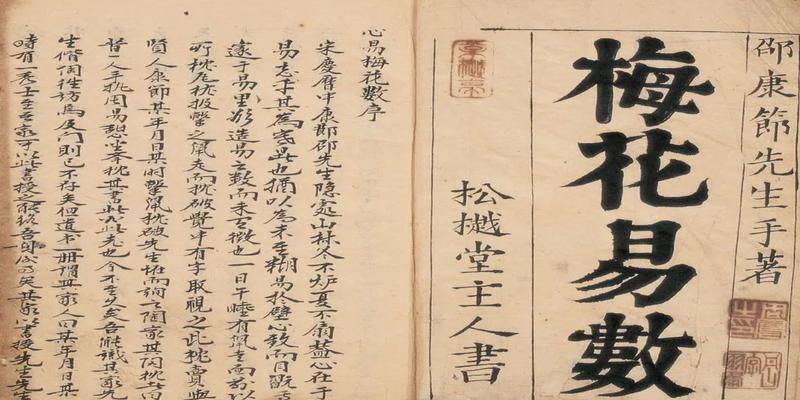 邵康節先生手著
梅花易數
松樾堂主人書
心易梅花數序
宋慶曆中康節邵先生隱處山林冬不炉夏不扇蓋心在于
易忘乎其為寒暑也猶以為未至糊易於壁心致而目
遂于易里欲造易之數而未有徵也一日午睡有鼠走而
所枕瓦枕投擊之鼠走而枕破覺中有字取視之此枕賣與
賢人康節某年月日某時擊鼠枕破先生怪而詢之陶家其陶枕者曰
昔一人手执周易憩坐举枕其書此必此老也今不至久矣吾能識其家先
生偕陶往訪焉及門則已不存矣但遺書一册謂其家人曰某年月日某
時有一秀士至吾家可以此書授之能終吾身後公矣其家以書授先生先生